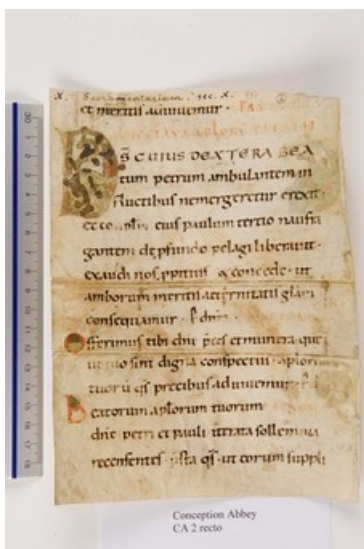 X. Sacramentarium. sec. X.
et meritis adiuuemur.
D̄S CUIUS DEXTERA BEA
tum petrum ambulantem in
fluctibus ne mergeretur erexit.
et coapl̄m eius paulum tertio naufra
gantem de ꝓfundo pelagi liberauit.
exaudi nos ꝓpitius & concede. ut
amborum meritis aeternitatis glām
consequamur.
Offerimus tibi dn̄e p̄ces et munera que
ut tuo sint digna conspectui. aplorū
tuorū q̄s precibus adiuuemur.
Beatorum aplorum tuorum
dn̄e petri et pauli
recensentes. q̄s. ut eorum suppli
Conception Abbey
CA 2 recto